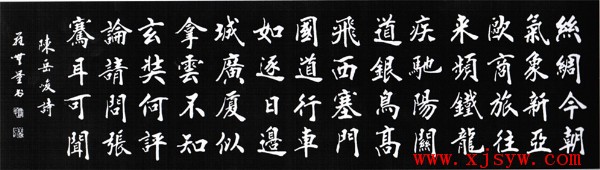 絲綢今朝
氣象新亞
歐商旅往
来頻鐵龍
疾馳陽關
道銀鳥高
飛西塞門
國道行車
如逐日邊
城廣厦似
拿雲不知
玄奘何評
論請問張
騫耳可聞
陳岳詩
www.xjsyw.com